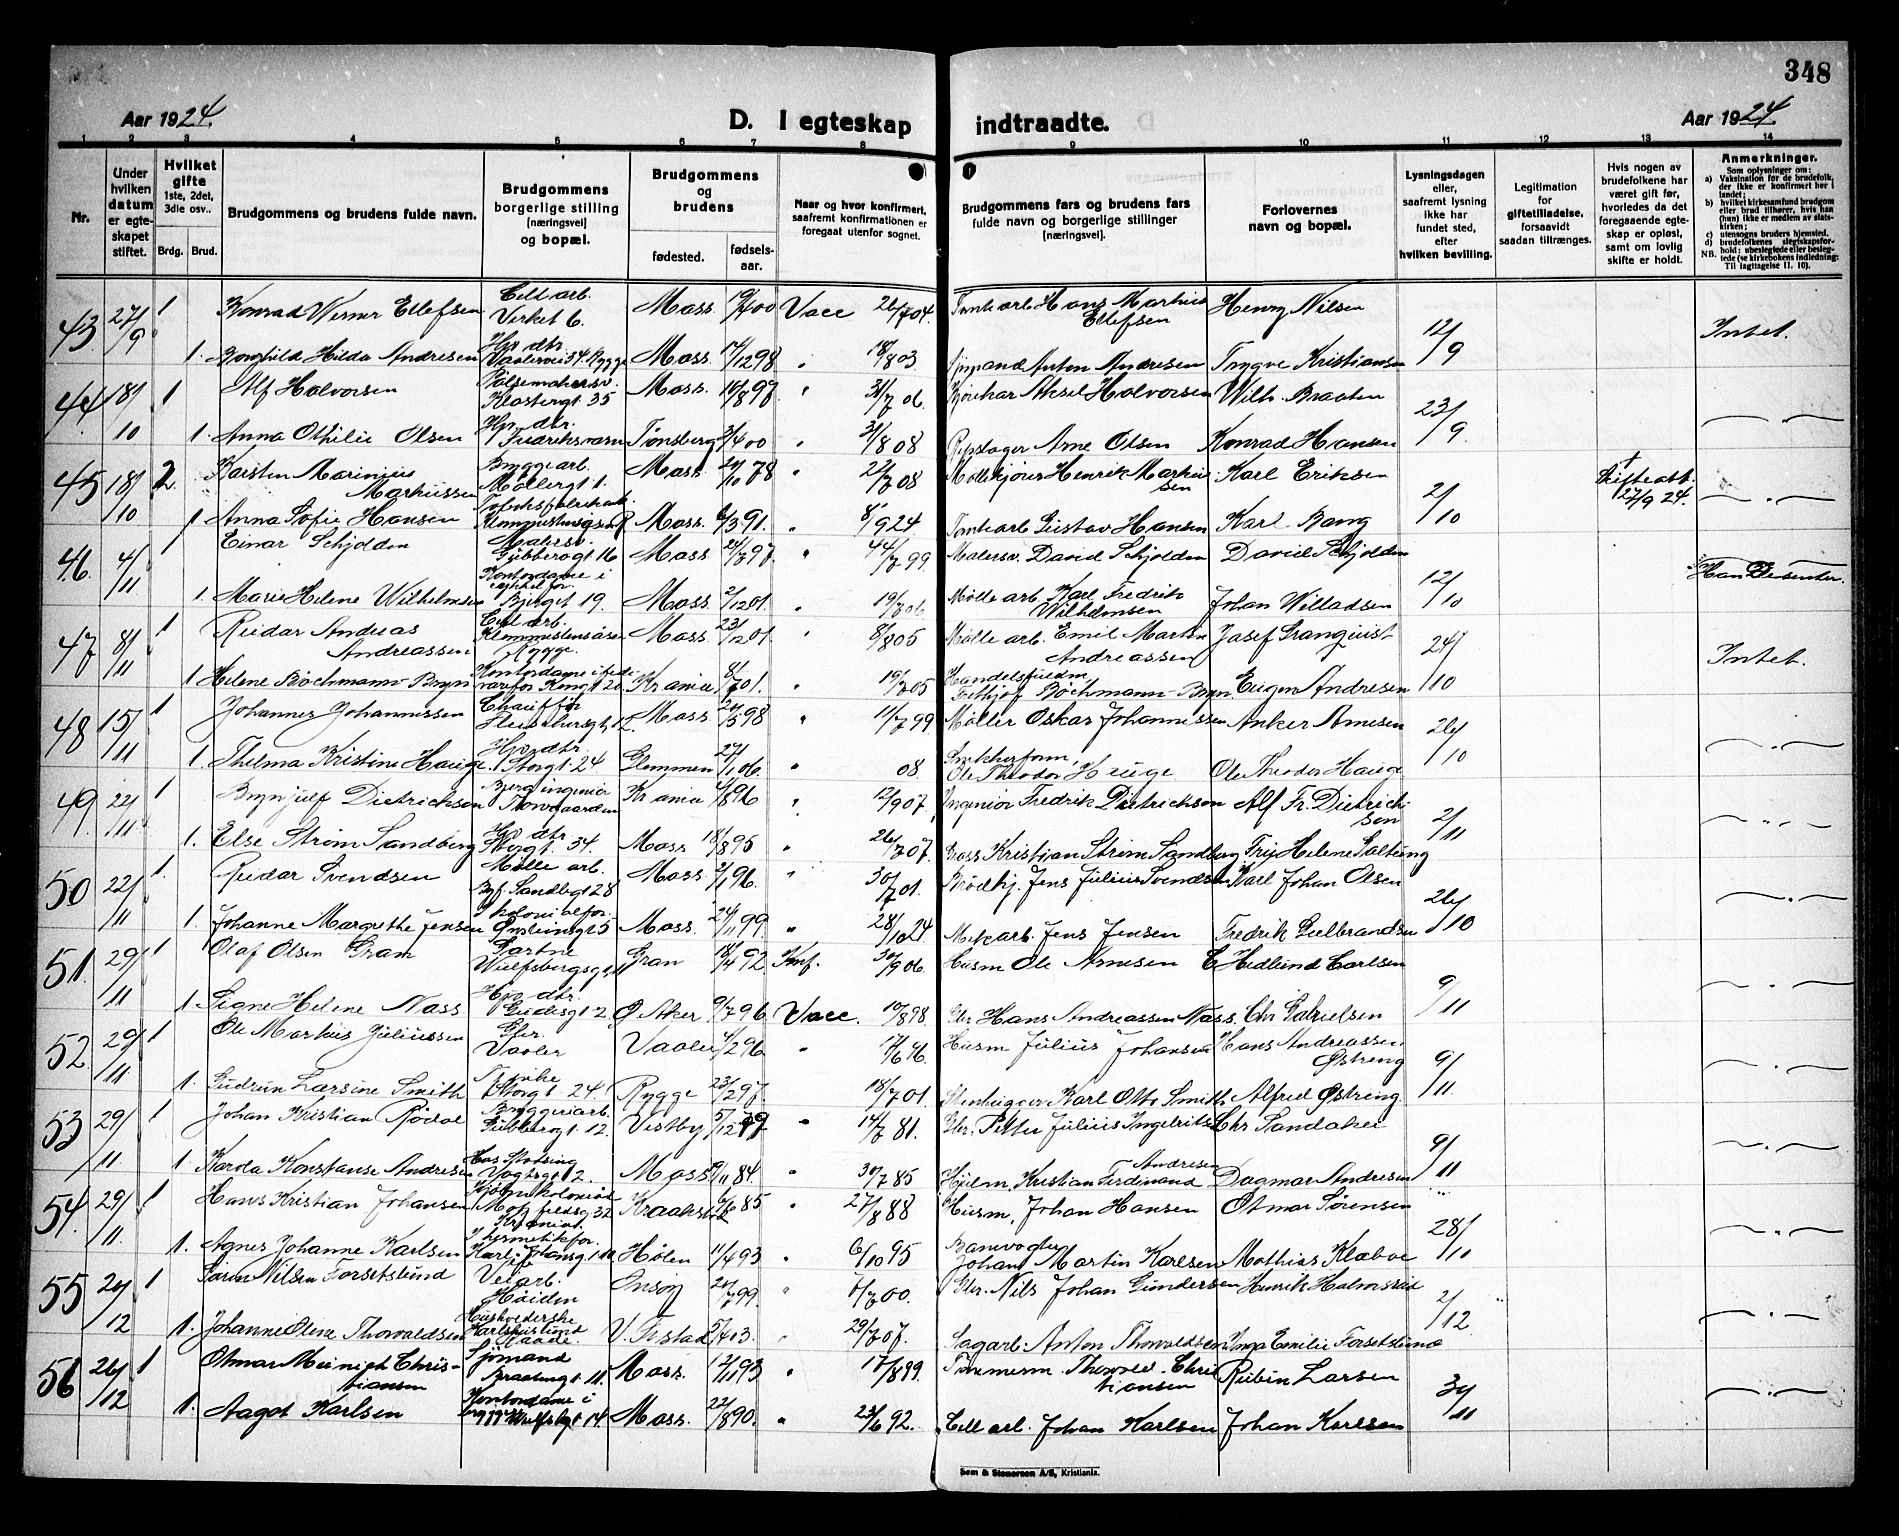 348
Aar 1924.
D. I egteskap
indtraadte.
Aar 1924.
1 2 3 4 5 6 7 8 9 10 11 12 13 14
Nr.
Under hvilken datum er egteskapet stiftet.
Hvilket gifte
1ste, 2det, 3die osv.
Brdg. Brud.
Brudgommens og brudens fulde navn.
Brudgommens borgerlige stilling (næringsvei) og bopæl.
Brudgommens og brudens
fødested. fødselsaar.
Naar og hvor konfirmert, saafremt konfirmationen er foregaat utenfor sognet.
Brudgommens fars og brudens fars fulde navn og borgerlige stillinger (næringsvei).
Forlovernes navn og bopæl.
Lysningsdagen eller, saafremt lysning ikke har fundet sted, efter hvilken bevilling.
Legitimation for giftetilladelse, forsaavidt saadan tiltrænges.
Hvis nogen av brudefolkene har været gift før, hvorledes da det foregaaende egteskap er opløst, samt om lovlig skifte er holdt.
Anmerkninger.
Som oplysninger om:
a) Vaksination for de brudefolk, der ikke er konfirmert her i landet;
b) hvilket kirkesamfund brudgom eller brud tilhører, hvis han (hun) ikke er medlem av statskirken;
c) utensogns bruders hjemsted.
d) brudefolkenes slegtskapsforhold: ubeslegtede eller beslegtede (se kirkebokens indledning: Til iagttagelse II. 10).
NB.
43 27/9 1 Konrad Werner Ellefsen Cell. arb. Verket 6. Moss 19/4 00 Vacc 26/7 04. Tomtearb Hans Markus Ellefsen Henry Nilsen 12/9 Intet.
1. Borghild Hilda Andresen Hp. dtr. Vaalervei 34. Rygge Moss. 17/12 98 18/8 03 Sjømand Anton Andresen Trygve Kristiansen
44 18/10 1 Alf Halvorsen Pølsemakersv. Klostergt. 35 Moss. 10/8 97 31/7 06 Kjørekar Aksel Halvorsen Wilh. Braaten 23/9
1. Anna Othilie Olsen Hp. dtr. Fredriksværn Tønsberg 3/4 00 31/8 08 Repslager Arne Olsen Konrad Hansen
45 18/10 2. Karsten Marinius Markussen Byggearb. Møllergt 1. Moss. 24/10 78 22/7 08 Møllekjører Henrik Markussen Karl Eriksen 2/10 Skifteatt. 27/9 24.
1 Anna Sofie Hansen Moss. 6/3 91. 8/9 24 Tomtearb Gustav Hansen Karl Bang
46. 4/11 1 Einar Schjolden Malersv. Gubberogt 16 Moss 24/7 97 14/7 99 Malersv. David Schjolden David Schjolden 12/10 Han Dissenter.
1. Marie Helene Wilhelmsen Kontordame i Bjerget 19. Moss. 2/12 01. 19/7 06 Mølle arb. Karl Fredrik Wilhelmsen Johan Willadsen
47 8/11 1 Reidar Andreas Andreassen Cell. arb. Rygge. Moss. 23/12 01. 8/8 05 Mølle arb. Emil Martin Andreassen Josef Granquist 24/10 Intet.
1 Helene Bochmann-Bryn Kr.ania 8/7 01. 19/7 05 Handelsfuldm. Frithjof Bochmann-Bryn Eugen Andresen
48 15/11 1 Johannes Johannessen Chauffør Moss. 24/5 98 11/7 99 Møller Oskar Johannessen Anker Arnesen 26/10
1. Thelma Kristine Hauge. Hp. dtr. Storgt. 24 Glemmen 27/1 06. 08 Ole Theodor Hauge Ole Theodor Hauge
49. 22/11 1 Brynjulf Dietrichsen Bergingeniør Thorvgaarden Kr.ania 4/8 96 12/9 07 Ingeniør Fredrik Dietrichson Alf Fr. Dietrichson 2/11
1. Else Strøm Sandberg Hp. dtr. Storgt. 34. Moss 18/8 95 26/7 07. Gross Kristian Strøm Sandberg Helene Salberg
50 22/11 1. Reidar Svendsen Mølle arb. Byf. Sandbgt 28 Moss. 2/1 96. 30/7 01. Brødkj. Jens Julius Svendsen Karl Johan Olsen 26/10
1. Johanne Margrethe Jensen Moss. 24/11 99 28/10 24 Mek arb. Jens Jensen Fredrik Gulbrandsen
51. 29/11 1 Olaf Olsen Gram Gartner Wulfsbergsgt 11 Gran 18/4 92 Konf. 30/9 06. Husm Ole Arnesen C Hedlund Carlsen 9/11
1. Signe Helene Nass Hp. dtr. Gudesgt 2 Ø. Aker 9/7 96 Vacc. 10/8 98 Gbr Hans Andreassen Nass. Chr Gabrielsen
52. 29/11 1 Ole Markus Juliussen Gbr. Vaaler Vaaler 4/2 96 17/6 96 Husm Julius Johansen Hans Andreassen Østreng 9/11
1. Gudrun Larsine Smith Storgt. 24. Rygge 23/2 97. 18/7 01. Stenhugger Karl Otto Smith Alfred Østreng
53 29/11 1 Johan Kristian Rødal Bryggeriarb. Gubberogt. 12. Vestby 5/12 79 14/7 81. Gbr. Petter Julius Ingebrigtsen Chr Sandaker 9/11
1. Karda Konstanse Andresen Vogtsgt 2. Moss 9/11 84. 30/7 85 Hjulm. Kristian Ferdinand Andresen Dagmar Andresen
54. 29/11 1 Hans Kristian Johansen Kr.ania. Kraakstad 6/6 85 27/8 88 Husm. Johan Hansen Otmar Sørensen 28/10
1. Agnes Johanne Karlsen I hermetikfor. Karl Johansgt 10. Hølen 11/4 93 6/10 95 Banevogter Johan Martin Karlsen Mathias Klæboe
55 24/12 1 Søren Nilsen Forsetlund Veiarb. Høiden Onsøy 24/7 99 9/7 00. Gbr. Nils Johan Gundersen Henrik Halvorsrød 2/12
1. Johanne Oline Thorvaldsen Husholderske Karlshuslund Raade. V. Fistad 5/4 03. 29/7 07. Sagarb. Anton Thorvaldsen Inga Emilie Forsetlund
56 26/12 1 Otmar Meinich Christiansen Sjømand Braatengt. 11. Moss. 12/1 93 17/8 99. Tømmerm. Thorvald Christiansen Rubin Larsen 30/11
1. Aagot Karlsen Kontordame i bryggeri Wulfsbgt 14. Moss. 22/8 90. 23/6 92. Cell arb. Johan Karlsen Johan Karlsen
Sem & Stenersen A/S, Kristiania.